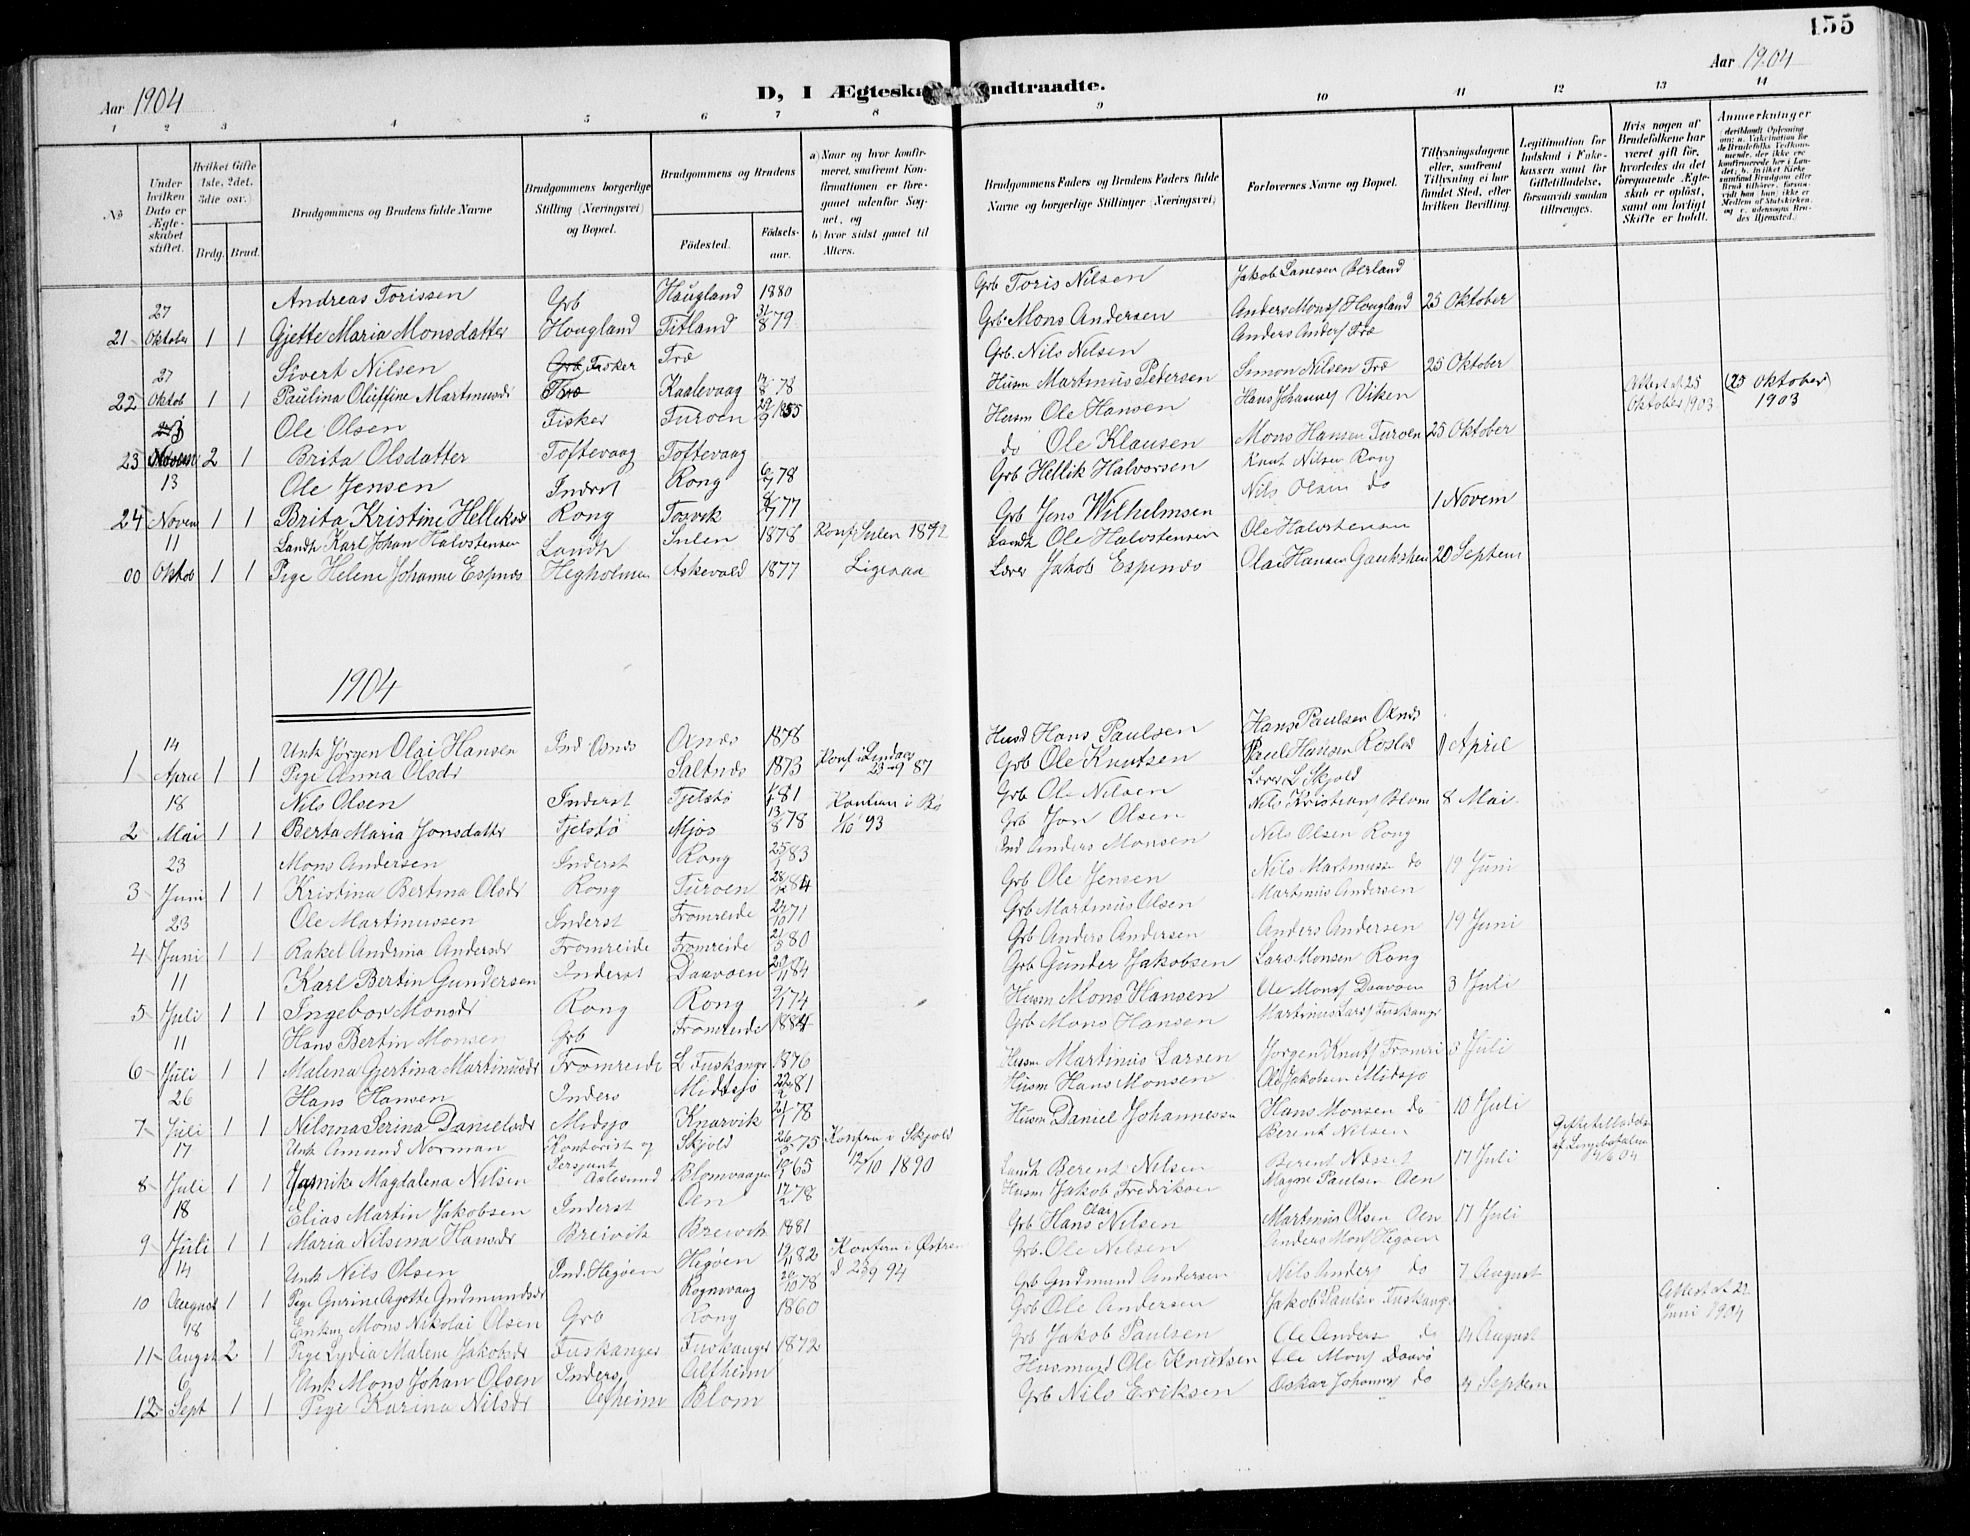 155
Aar 1904
D, I Ægteska ndtraadte.
Aar 1904
1 2 3 4 5 6 7 8 9 10 11 12 13 14
No
Under hvilken Dato er Ægteskabet stiftet.
Hvilket Gifte (1ste, 2det, 3die osv.)
Brdg. Brud.
Brudgommens og Brudens fulde Navne
Brudgommens borgerlige Stilling (Næringsvei) og Bopæl.
Brudgommens og Brudens
Födested.
Födselsaar.
a) Naar og hvor konfirmeret, saafremt Konfirmationen er foregaaet udenfor Sognet, og
b) hvor sidst gaaet til Alters.
Brudgommens Faders og Brudens Faders fulde Navne og borgerlige Stillinger (Næringsvei)
Forlovernes Navne og Bopæl.
Tillysningsdagene eller, saafremt Tillysning ei har fundet Sted, efter hvilken Bevilling.
Legitimation for Indskud i Enkekassen samt for Giftetilladelse, forsaavidt saadan tiltrænges.
Hvis nogen af Brudefolkene har været gift før, hvorledes da det foregaaende Ægteskab er opløst, samt om lovligt Skifte er holdt.
Anmærkninger
27 Andreas Torissen Grb Haugland 1880 Grb Toris Nilsen Jakob Larsen Berland
21 Oktober 1 1 Gjette Maria Monsdatter Hougland Titland 31/8 79 Grb. Mons Andersen Anders Monss Hougland 25 Oktober
Anders Anders Træ
27 Sivert Nilsen Grb Fisker Træ Grb. Nils Nilsen
22 Oktob 1 1 Paulina Oluffine Martinusdr Træ Kaalevaag 78 Husm Martinus Pedersen Simon Nilsen Træ 25 Oktober Attest af 25 Oktober 1903 (25 Oktober) 1903
Ole Olsen Fisker Turoen 1855 Husm Ole Hansen Hans Johannes Viken
23 Novem 2 1 Brita Olsdatter Toftevaag Toftevaag do Ole Klausen Mons Hansen Turoen 25 Oktober
13 Ole Jensen Inderst Rong 78 Grb Hellik Halvorsen Knut Nilsen Rong
24 Novem 1 1 Brita Kristine Helleksdr Rong Tosvik 77 Grb Jens Wilhelmsen Nils Olsen do 1 Novem
11 Landh Karl Johan Halvstensen Landh Sulen 1878 Konf Sulen 1892 Landh Ole Halvstensen Ole Halvstensen
00 Oktob 1 1 Pige Helene Johanne Espenæs Hegholmen Askevold 1877 Ligesaa Lærer Jakob Espenæs Olai Hansen 20 Septem
1904
14 Unk Jørgen Olai Hansen Ind Oxnæs Oxnæs 1878 Husm Hans Paulsen Hans Paulsen Oxnæs
1 April 1 1 Pige Anna Olsdr Saltnæs 1873 Konf i Lindaas 23-9 87 Grb Ole Knutsen Paul Hansen Rosland 1 April
Lærer L Skjold
18 Nils Olsen Inderst Tjelstø 81 Konfirm i Bø Grb Ole Nilsen Nils Kristians Blom 8 Mai
2 Mai 1 1 Berta Maria Jonsdatter Tjelstø Mjøs 13/8 78 1/10 93 Grb Jon Olsen
23 Mons Andersen Inderst Rong 83 Ind Anders Monsen Nils Olsen Rong
3 Juni 1 1 Kristina Bertina Olsdr Rong Turoen 84 Grb Ole Jensen Nils Martinussen do 19 Juni
23 Ole Martinussen Inderst Fromreide 71 Grb Martinus Olsen Martinus Andersen
4 Juni 1 1 Rakel Andrina Andersdr Fromreide Fromreide 21/5 80 Grb Anders Andersen Anders Andersen 19 Juni
11 Karl Bertin Gundersen Inderst Daavøen 84 Grb Gunder Jakobsen Lars Monsen Rong
5 Juli 1 1 Ingebor Monsdr Rong Rong 74 Husm Mons Hansen Ole Mons Daavøen 3 Juli
11 Hans Bertin Monsen Grb Fromreide 1884 Grb Mons Hansen Martinus Larss Tuskanger
6 Juli 1 1 Malena Gjertina Martinusdr Fromreide L Tuskanger 1876 Husm Martinus Larsen Jørgen Knuts Fromri 3 Juli
26 Hans Hansen Inders Midtsjø 81 Husm Hans Monsen Ole Jakobsen Midsjø
7 Juli 1 1 Nilsina Serina Danielsdr Midsjø Knarvik 78 Husm Daniel Johannessen Hans Monsen do 10 Juli
17 Unk Amund Norman Kontorist og Skjold 75 Konfirm i Skjold Berent Nilsen Giftetilladelse
8 Juli 1 1 Jannike Magdalena Nilsen Aalesund Blomvaagen 65 12/10 1890 Landh Berent Nilsen Berent Næsset 17 Juli
18 Elias Martin Jakobsen Inderst Oen 78 Husm Jakob Fredriksen Magne Paulsen Oen
9 Juli 1 1 Maria Nilsina Hansdr Breivik Breivik 1881 Grb Hans Olai Nilsen Martinus Olsen Oen 17 Juli
14 Unk Nils Olsen Ind. Hegøen Hegøen 82 Konfirm i Østre Grb. Ole Nilsen Anders Mons Hegøen
10 August 1 1 Pige Gurine Agotte Gudmundsdr Rognsvaag 78 d 23/9 94 Grb Gudmund Andersen Nils Anders do 7 August
18 Enkm Mons Nikolai Olsen Grb Rong 1860 Grb Ole Andersen Jakob Paulsen Tuskanger Attest af 22 Juni 1904
11 August 2 1 Pige Lydia Malene Jakobsdr Tuskanger Tuskanger 1872 Grb Jakob Paulsen Ole Anders do 14 August
6 Unk Mons Johan Olsen Inders Alfheim Husmand Ole Knutsen Ole Mons Daavø
12 Sept 1 1 Pige Karina Nilsdr Alfheim Blom Grb Nils Eriksen Oskar Johannes do 4 Septem